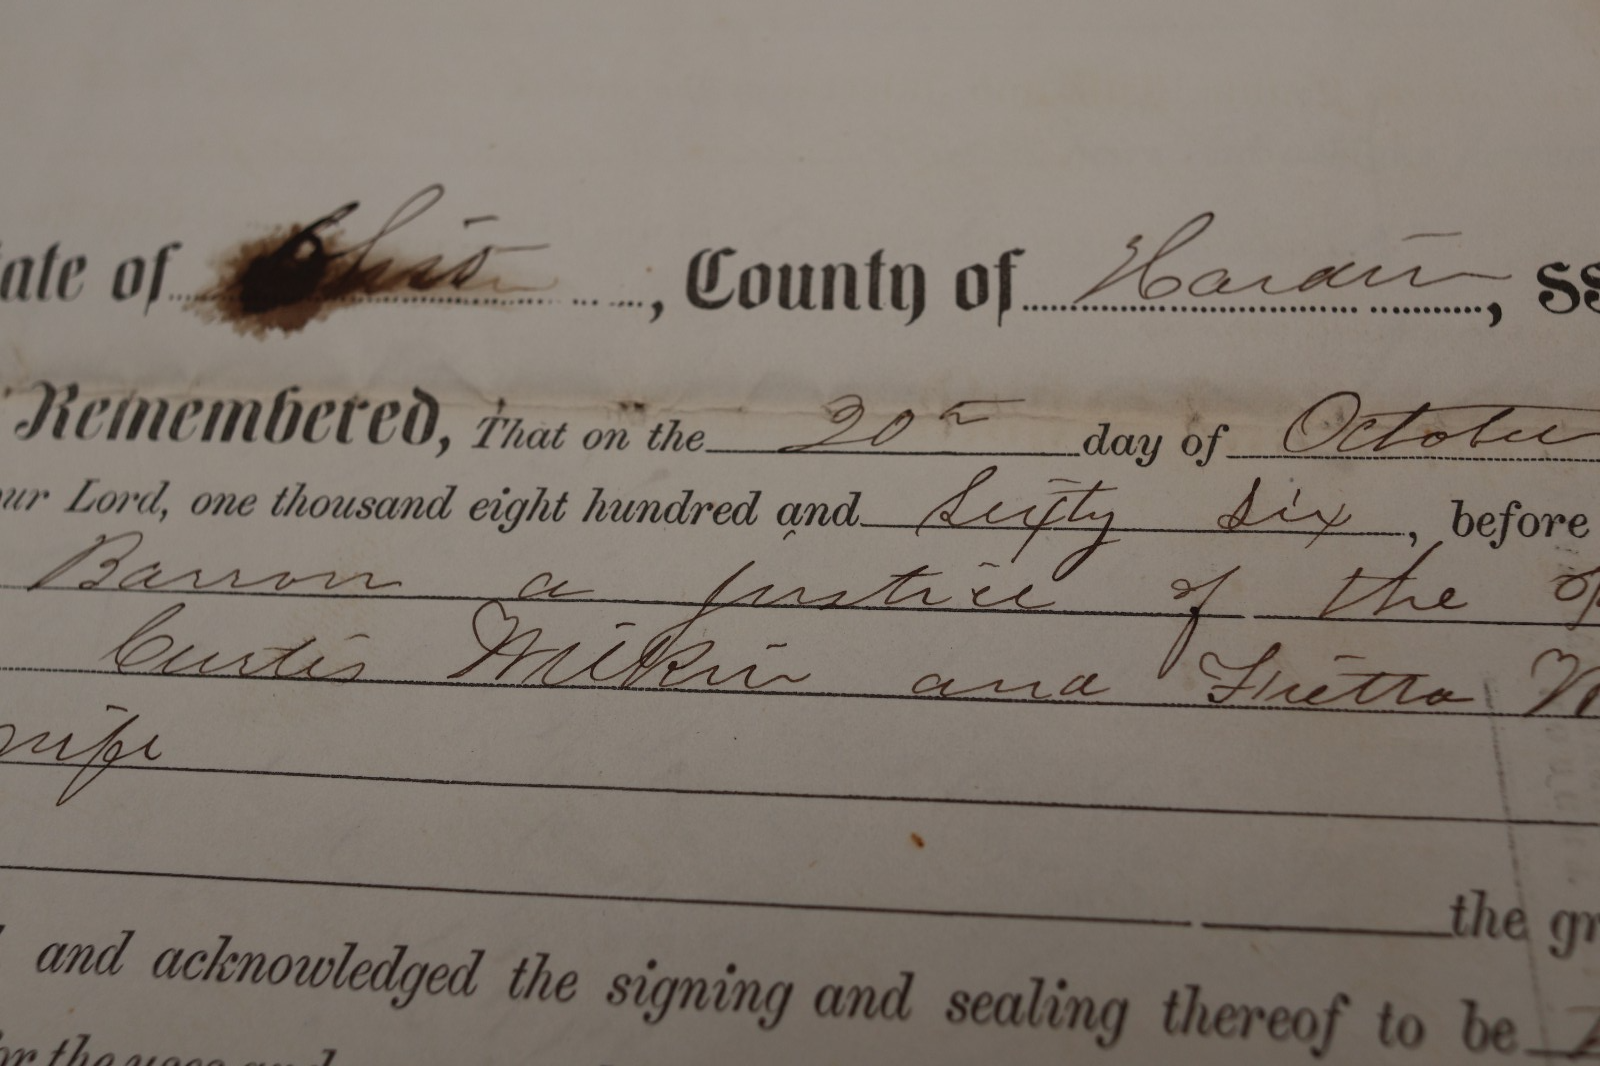 tate of Ohio, County of Hardin, SS
Remembered, That on the 20th day of October
ur Lord, one thousand eight hundred and Sixty Six, before
Barron a justice of the
Curtis Wilkin and
wife
the gr
and acknowledged the signing and sealing thereof to be
for the uses and